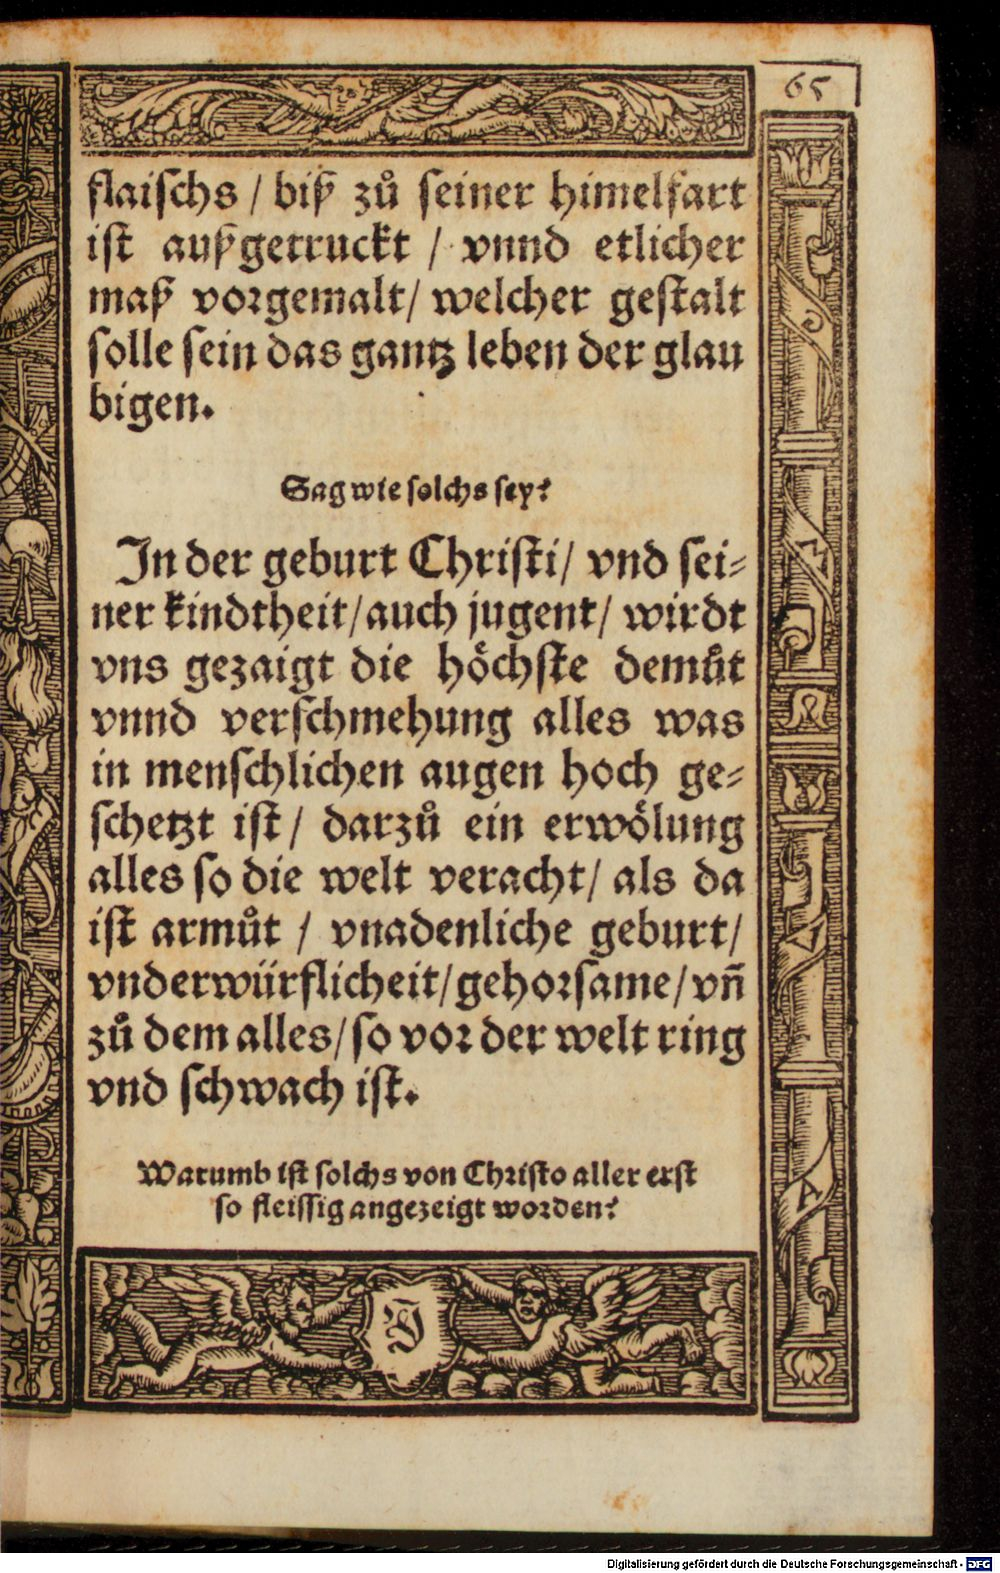 65
flaischs / biß zů seiner himelfart
ist außgetruckt / vnnd etlicher
maß vorgemalt / welcher gestalt
solle sein das gantz leben der glau
bigen.
Sag wie solchs sey?
In der geburt Christi / vnd sei⸗
ner kindtheit / auch jugent / wirdt
vns gezaigt die höchste demůt
vnnd verschmehung alles was
in menschlichen augen hoch ge⸗
schetzt ist / darzů ein erwölung
alles so die welt veracht / als da
ist armůt / vnadenliche geburt /
vnderwürflicheit / gehorsame / vñ
zů dem alles / so vor der welt ring
vnd schwach ist.
Warumb ist solchs von Christo aller erst
so fleissig angezeigt worden?
J
Digitalisierung gefördert durch die Deutsche Forschungsgemeinschaft - DFG